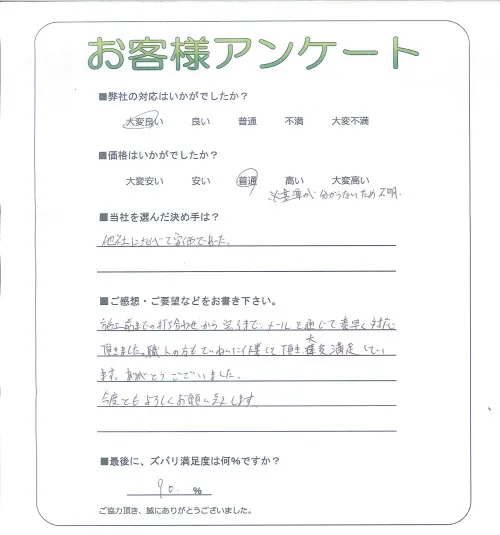 お客様アンケート
■弊社の対応はいかがでしたか？
大変良い 良い 普通 不満 大変不満
■価格はいかがでしたか？
大変安い 安い 普通 高い 大変高い
※基準が分からないため不明.
■当社を選んだ決め手は？
他社に比べて安価であった.
■ご感想・ご要望などをお書き下さい。
施工前までの打ち合わせから完了まで、メールを通じて素早く対応
頂きました。職人の方もていねいに作業して頂き大変満足してい
ます。ありがとうございました。
今度ともよろしくお願い致します
■最後に、ズバリ満足度は何％ですか？
90. %
ご協力頂き、誠にありがとうございました。